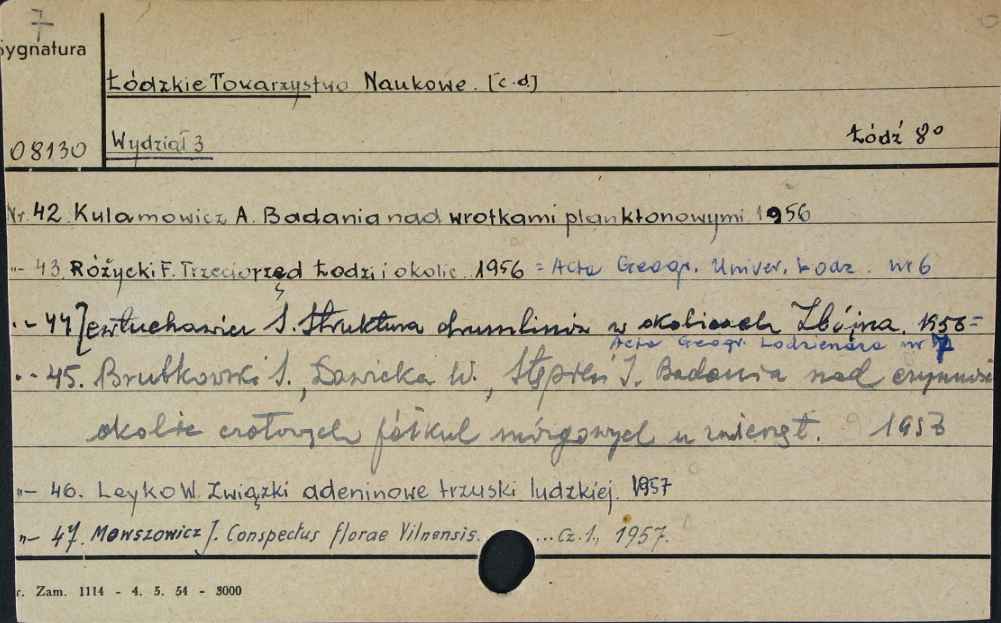 7
Sygnatura
Łódzkie Towarzystwo Naukowe. [c.d.]
08130 Wydział 3 Łódź 8°
Nr. 42. Kulamowicz A. Badania nad wrotkami planktonowymi 1956
"- 43. Różycki F. Trzeciorzęd Łodzi i okolic. 1956 = Acta Geogr. Univer. Lodz. nr 6
"- 44 S. Struktura drumlinów w okolicach Zbójna. 1956 =
Acta Geogr. Lodziensia nr 7
"- 45. Brutkowski S., W., Stępień I. Badania nad
okolic czołowych półkul mózgowych u zwierząt. 1957
"- 46. Leyko W. Związki adeninowe trzuski ludzkiej. 1957
"- 47. Mowszowicz J. Conspectus florae Vilnensis. ... Cz. 1., 1957.
r. Zam. 1114 - 4. 5. 54 - 3000